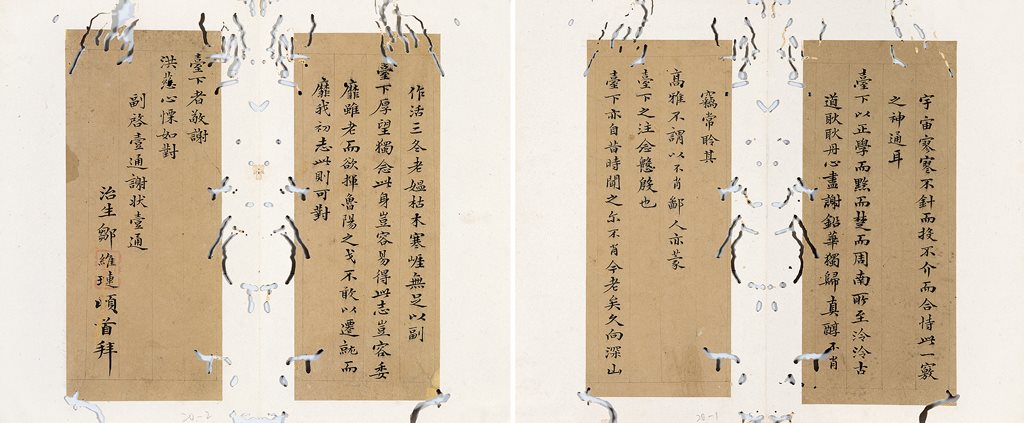 宇宙寥寥不針而投不介而合恃此一竅
之神通耳
臺下以正學而黔而楚而周南所至泠泠古
道耿耿丹心盡謝鉛華獨歸真醇不肖
竊常聆其
高雅不謂以不肖鄙人亦蒙
臺下之注念慇慇也
臺下亦自昔時聞之尓不肖今老矣久向深山
作活三冬老嫗枯木寒崕無足以副
臺下厚望獨念此身豈容易得此志豈容委
靡雖老而欲揮魯陽之戈不敢以遷就而
靡我初志此則可對
臺下者敬謝
洪慈心慄如對
副啓壹通謝狀壹通
治生鄒維璉頓首拜
20-2
20-1